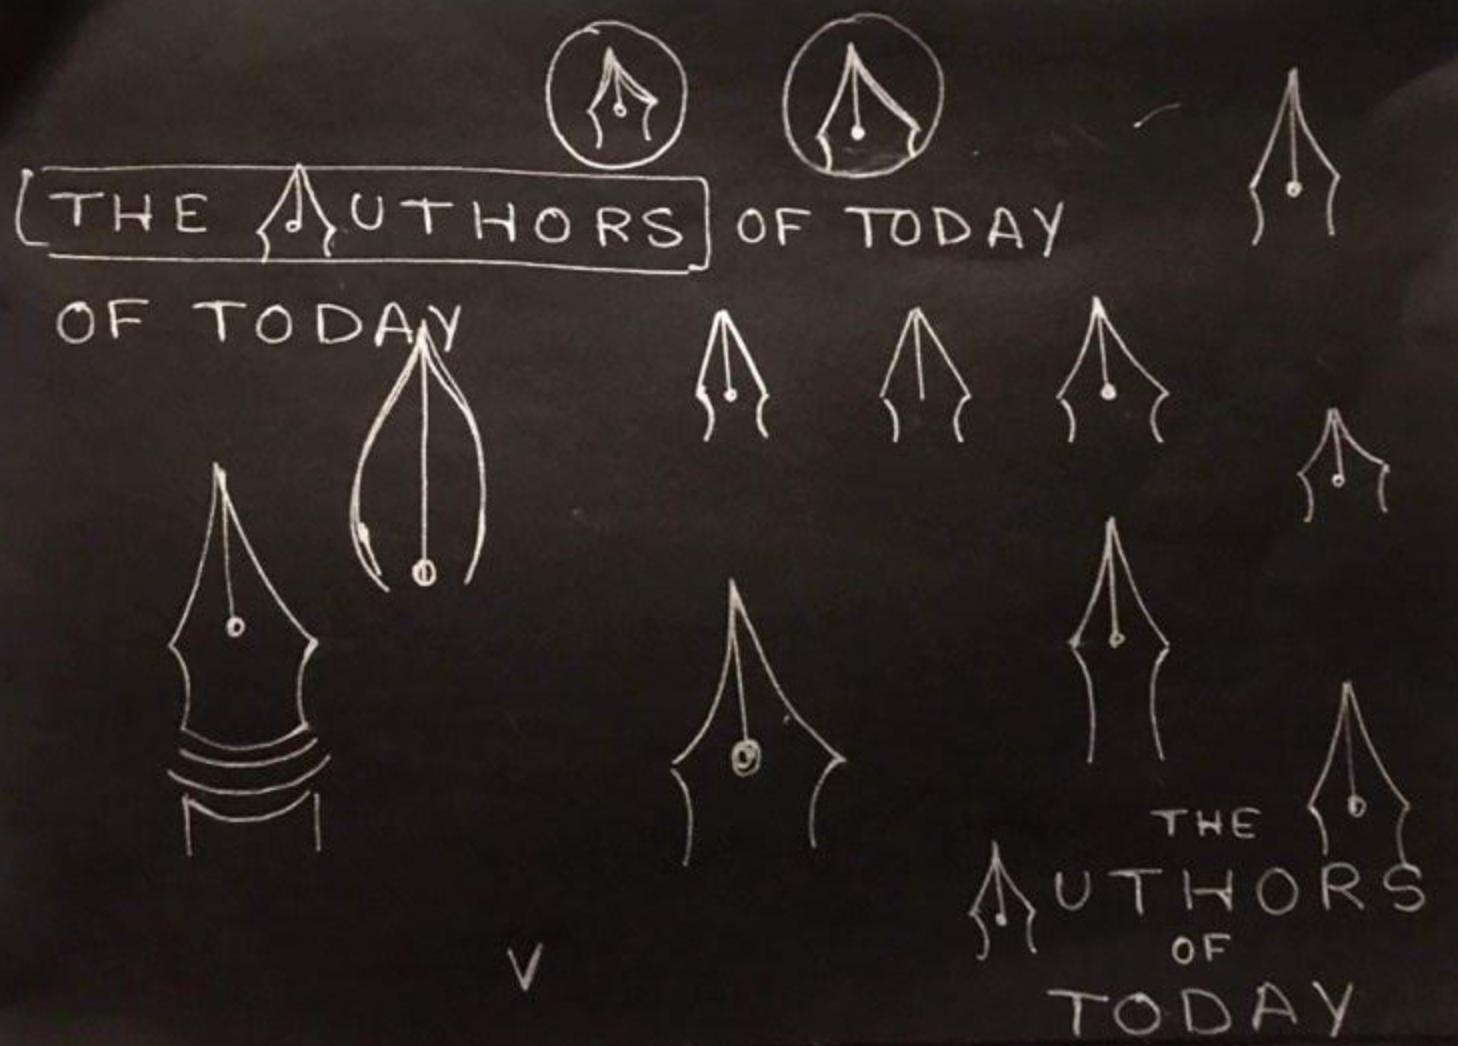 THE AUTHORS OF TODAY
OF TODAY
THE
AUTHORS
OF
TODAY
V